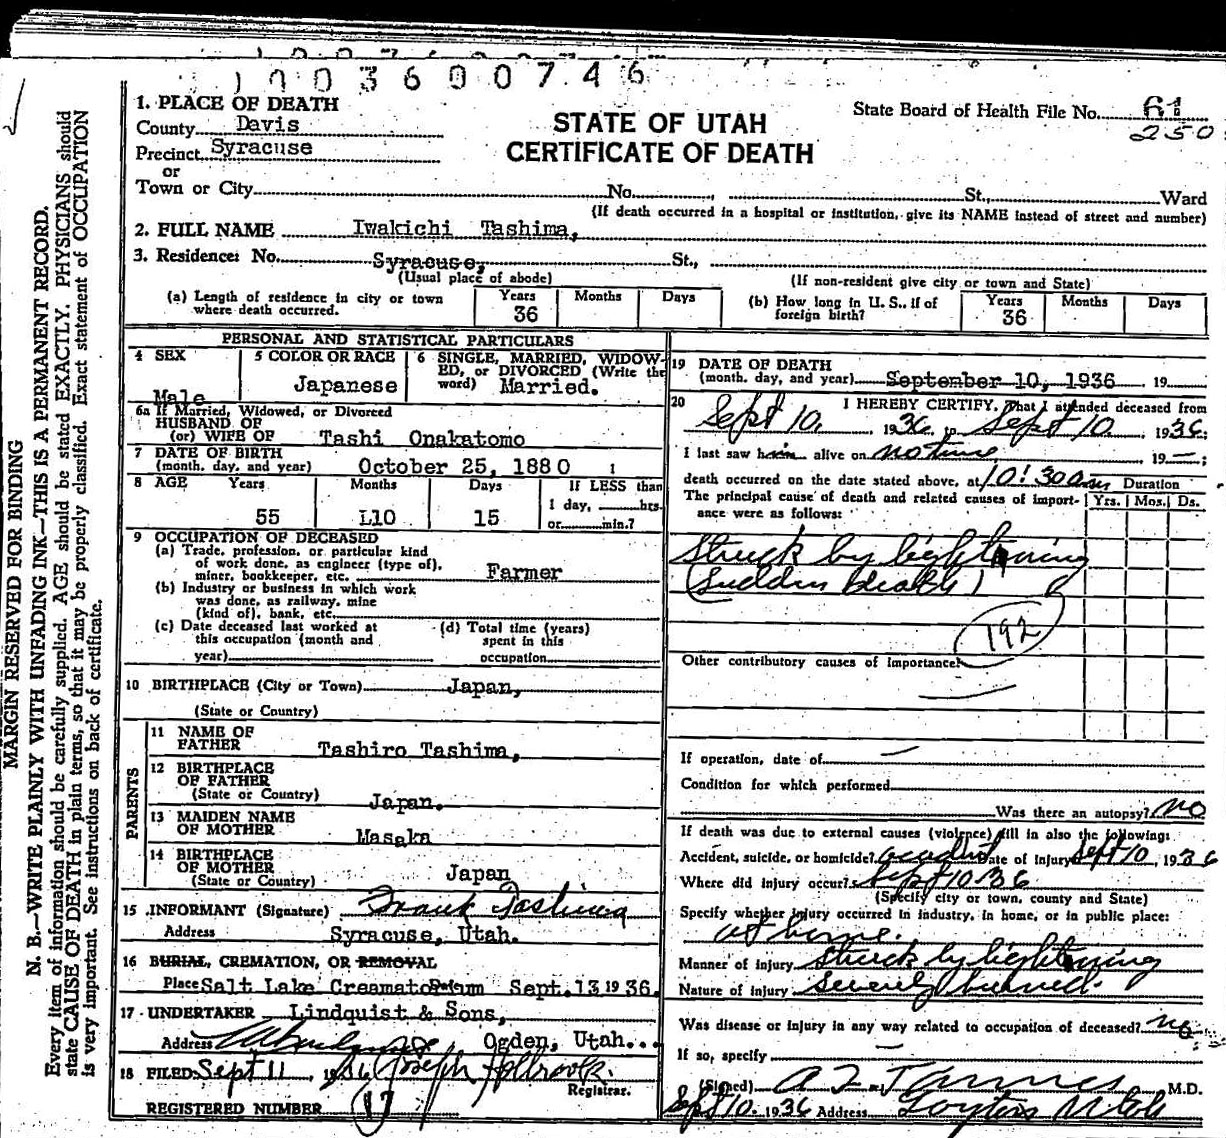 1003600746
1. PLACE OF DEATH
County Davis
Precinct Syracuse
or
Town or City No. St., Ward
STATE OF UTAH
CERTIFICATE OF DEATH
State Board of Health File No. 61
250
(If death occurred in a hospital or institution, give its NAME instead of street and number)
2. FULL NAME Iwakichi Tashima,
3. Residence: No. Syracuse, St.,
(Usual place of abode)
(If non-resident give city or town and State)
(a) Length of residence in city or town where death occurred.
Years Months Days
36
(b) How long in U. S., if of foreign birth?
Years Months Days
36
PERSONAL AND STATISTICAL PARTICULARS
4 SEX
Male
5 COLOR OR RACE
Japanese
6 SINGLE, MARRIED, WIDOWED, or DIVORCED (Write the word) Married.
6a If Married, Widowed, or Divorced
HUSBAND OF
(or) WIFE OF Tashi Onakatomo
7 DATE OF BIRTH
(month, day, and year) October 25, 1880
8 AGE Years Months Days If LESS than
1 day, hrs.
or min.?
55 L10 15
9 OCCUPATION OF DECEASED
(a) Trade, profession, or particular kind
of work done, as engineer (type of),
miner, bookkeeper, etc. Farmer
(b) Industry or business in which work
was done, as railway, mine
(kind of), bank, etc.
(c) Date deceased last worked at
this occupation (month and
year)
(d) Total time (years)
spent in this
occupation
10 BIRTHPLACE (City or Town) Japan,
(State or Country)
PARENTS
11 NAME OF
FATHER Tashiro Tashima,
12 BIRTHPLACE
OF FATHER
(State or Country) Japan.
13 MAIDEN NAME
OF MOTHER Masaka
14 BIRTHPLACE
OF MOTHER
(State or Country) Japan
15 INFORMANT (Signature) Frank Tashima
Address Syracuse, Utah.
16 BURIAL, CREMATION, OR REMOVAL
Place Salt Lake Sept. 13 1936.
17 UNDERTAKER Lindquist & Sons,
Address Ogden, Utah...
18 FILED Sept 11 1936 Joseph Holbrook.
Registrar.
REGISTERED NUMBER 17
19 DATE OF DEATH
(month, day, and year) September 10, 1936 19
20 I HEREBY CERTIFY, That I attended deceased from
Sept 10, 1936, to Sept 10, 1936;
I last saw him alive on no time 19—;
death occurred on the date stated above, at 10:30 am Duration
The principal cause of death and related causes of importance were as follows:
Yrs. Mos. Ds.
Struck by lightning
(Sudden death)
192
Other contributory causes of importance:
If operation, date of
Condition for which performed
Was there an autopsy? No
If death was due to external causes (violence) fill in also the following:
Accident, suicide, or homicide? accident Date of injury Sept 10, 1936
Where did injury occur? Sept 10-36
(Specify city or town, county and State)
Specify whether injury occurred in industry, in home, or in public place:
at home.
Manner of injury Struck by lightning
Nature of injury Severely burned.
Was disease or injury in any way related to occupation of deceased? no
If so, specify
(Signed) M.D.
Sept 10. 1936 Address Utah
MARGIN RESERVED FOR BINDING
N. B.—WRITE PLAINLY WITH UNFADING INK—THIS IS A PERMANENT RECORD.
Every item of information should be carefully supplied. AGE should be stated EXACTLY. PHYSICIANS should
state CAUSE OF DEATH in plain terms, so that it may be properly classified. Exact statement of OCCUPATION
is very important. See instructions on back of certificate.